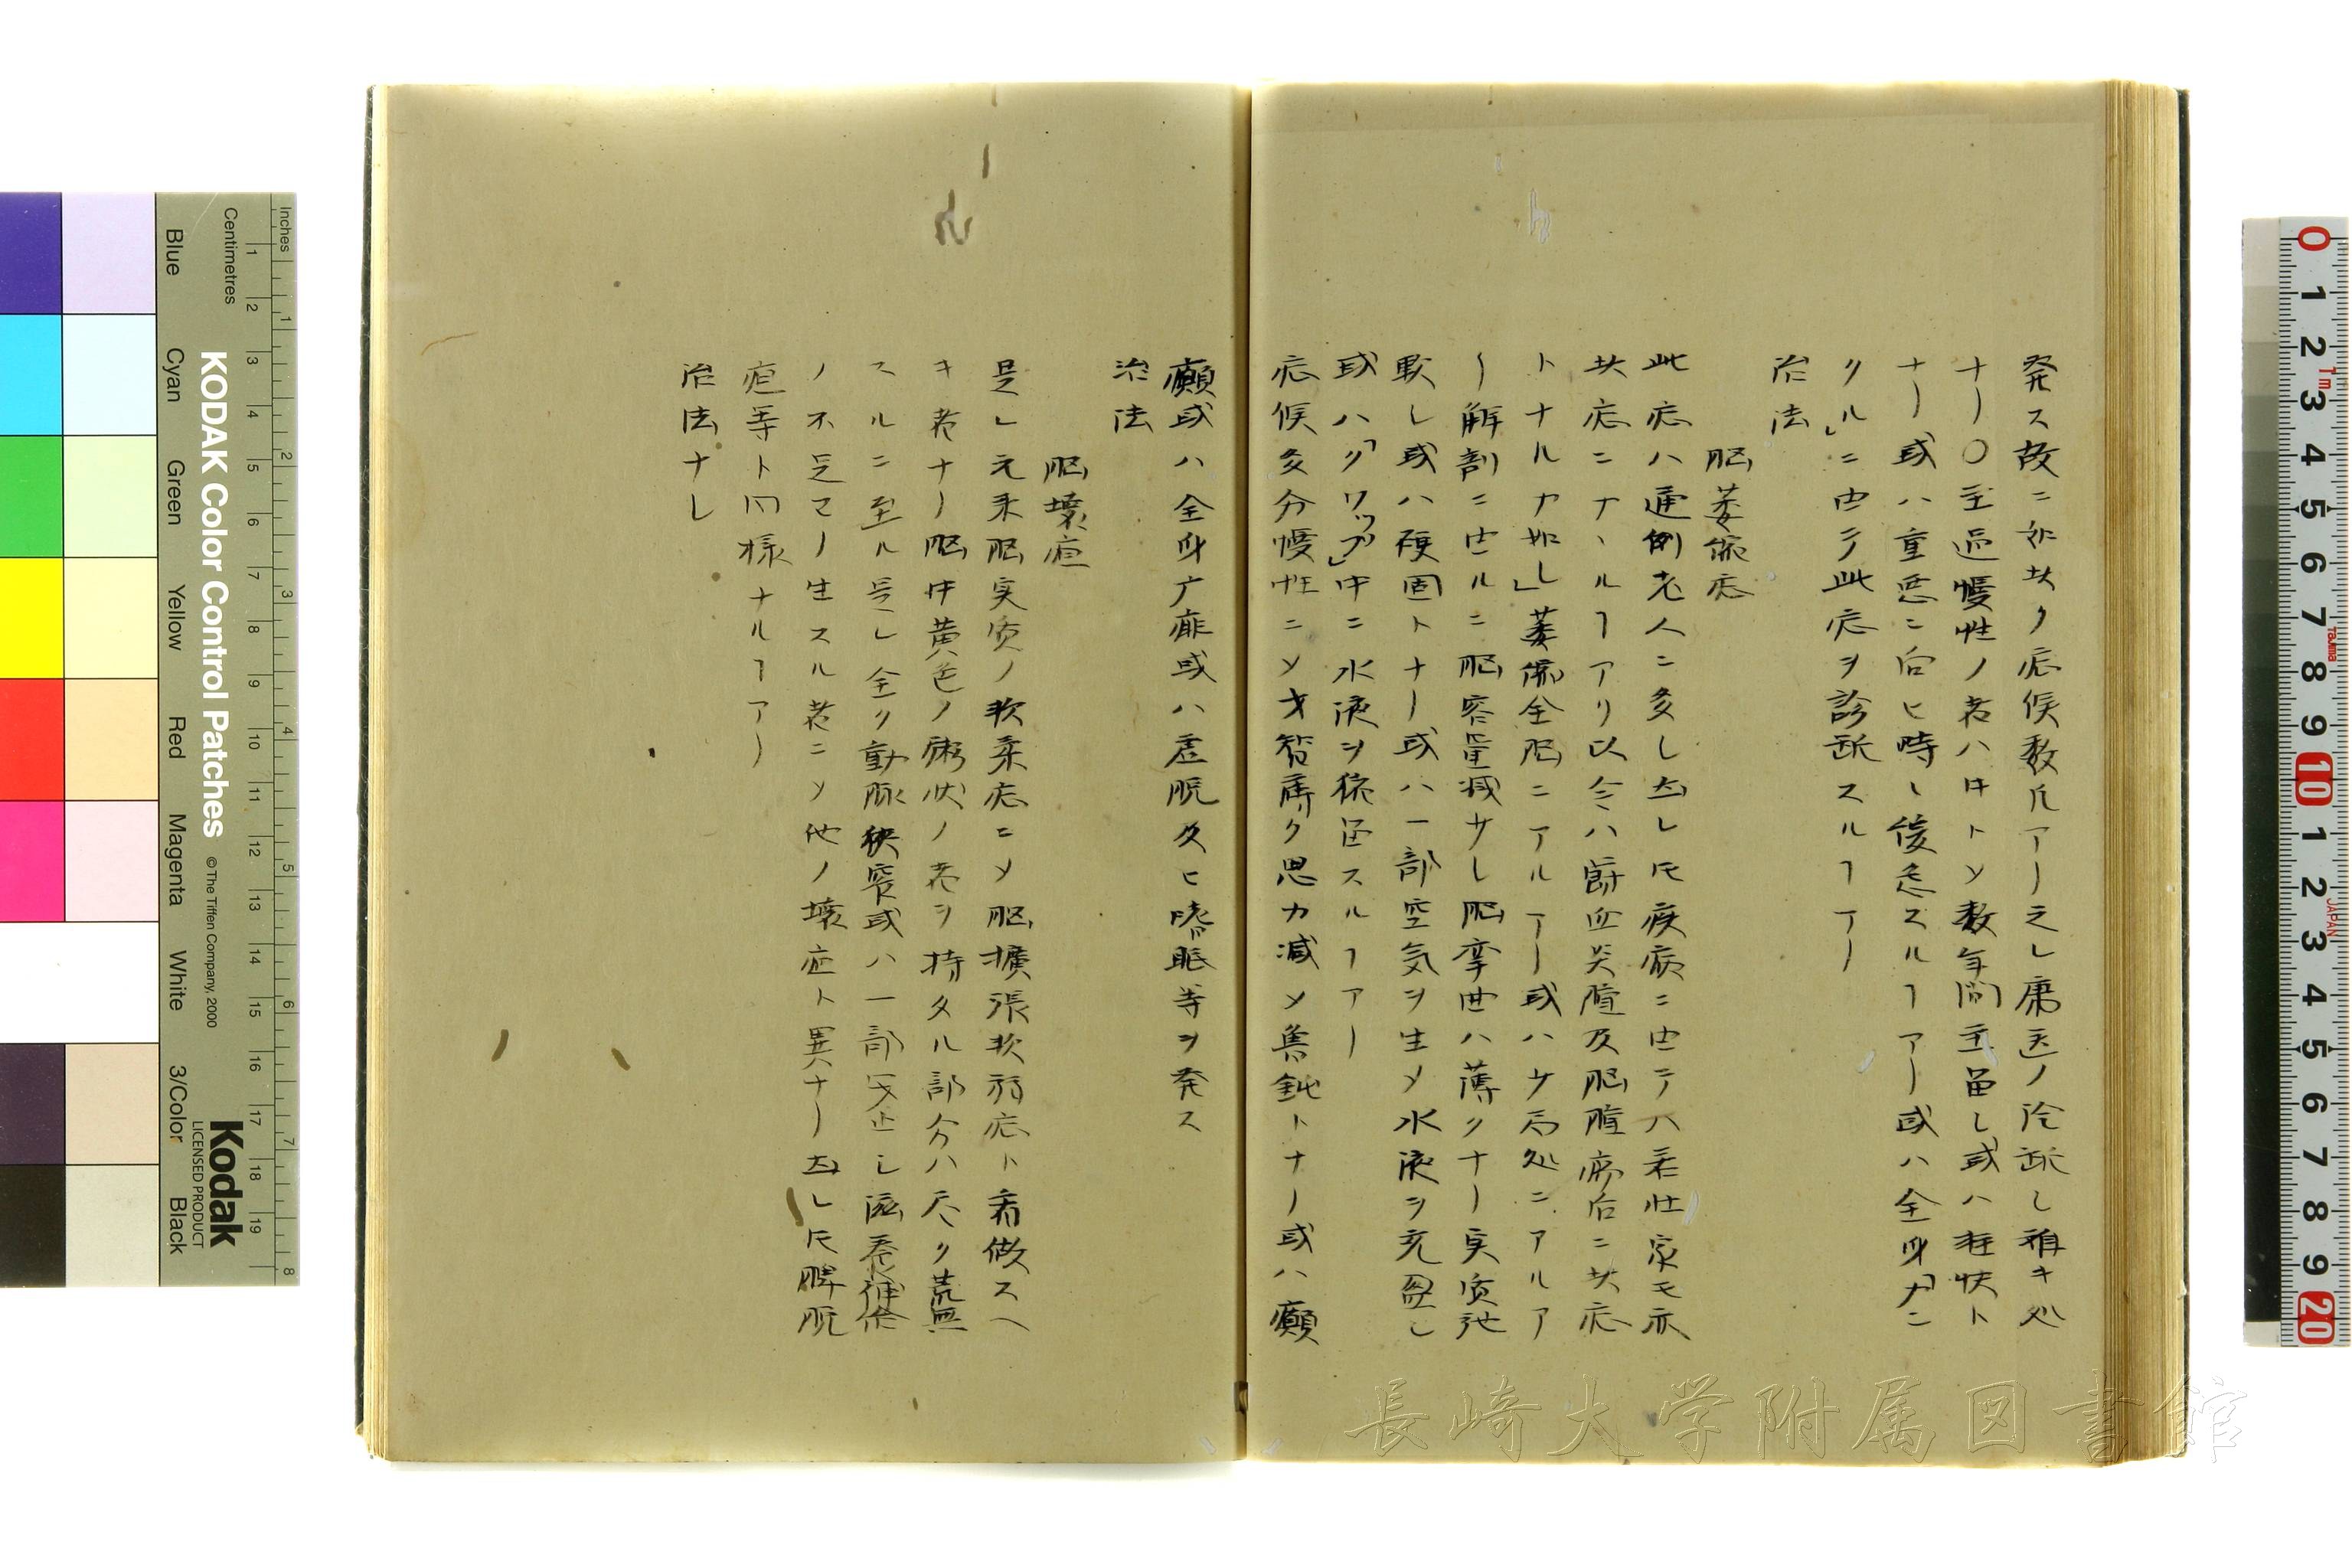 発ス故ニ訳其ク症候数凡アリ之レ庸医ノ冷訴シ稚キ処
ナリ〇至過慢性ノ者ハ中トソ数年間主留シ或ハ狂状ト
ナリ或ハ重悪ニ向ヒ時〻後怠スルヿアリ或ハ全身「ナニ
リル」ニ由テ此症ヲ診断スルヿアリ
治法
脳萎縮症
此症ハ通例老人ニ多シ然レ𪜈疾病ニ由テハ若壮家モ亦
其症ニナヽルヿアリ以令ハ欝血炎腫及脳腫瘍后ニ其症
トナルカ如シ」萎縮全脳ニアルアリ或ハ少局処ニアルア
リ解剖ニ由ルニ脳容量減少シ脳挛曲ハ薄クナリ実质弛
軟シ或ハ硬固トナリ或ハ一部空気ヲ生メ水液ヲ充盈シ
或ハ「クワツプ」中ニ水液ヲ稽留スルヿアリ
症候多分慢性ニソ才智薄ク思力減メ愚鈍トナリ或ハ癲
癲或ハ全身广痱或ハ虚脱久ヒ嗜眠等ヲ発ス
治法
脳壊疽
是レ元来脳実质ノ軟柔症ニメ脳擴張軟弱症ト看做スヘ
キ者ナリ脳中黄色ノ粥状ノ者ヲ持タル部分ハ尽ク荒無
スルニ至ル是レ全ク動脉狭窄或ハ一部閉止シ滋養補給
ノ不足ヨリ生スル者ニソ他ノ壊疽ト異ナリ然レ𪜈脾脱
疽等ト同様ナルヿアリ
治法ナシ
KODAK Color Control Patches
© The Tiffen Company, 2000
Kodak
LICENSED PRODUCT
Inches
Centimetres
Blue
Cyan
Green
Yellow
Red
Magenta
White
3/Color
Black
長崎大学附属図書館